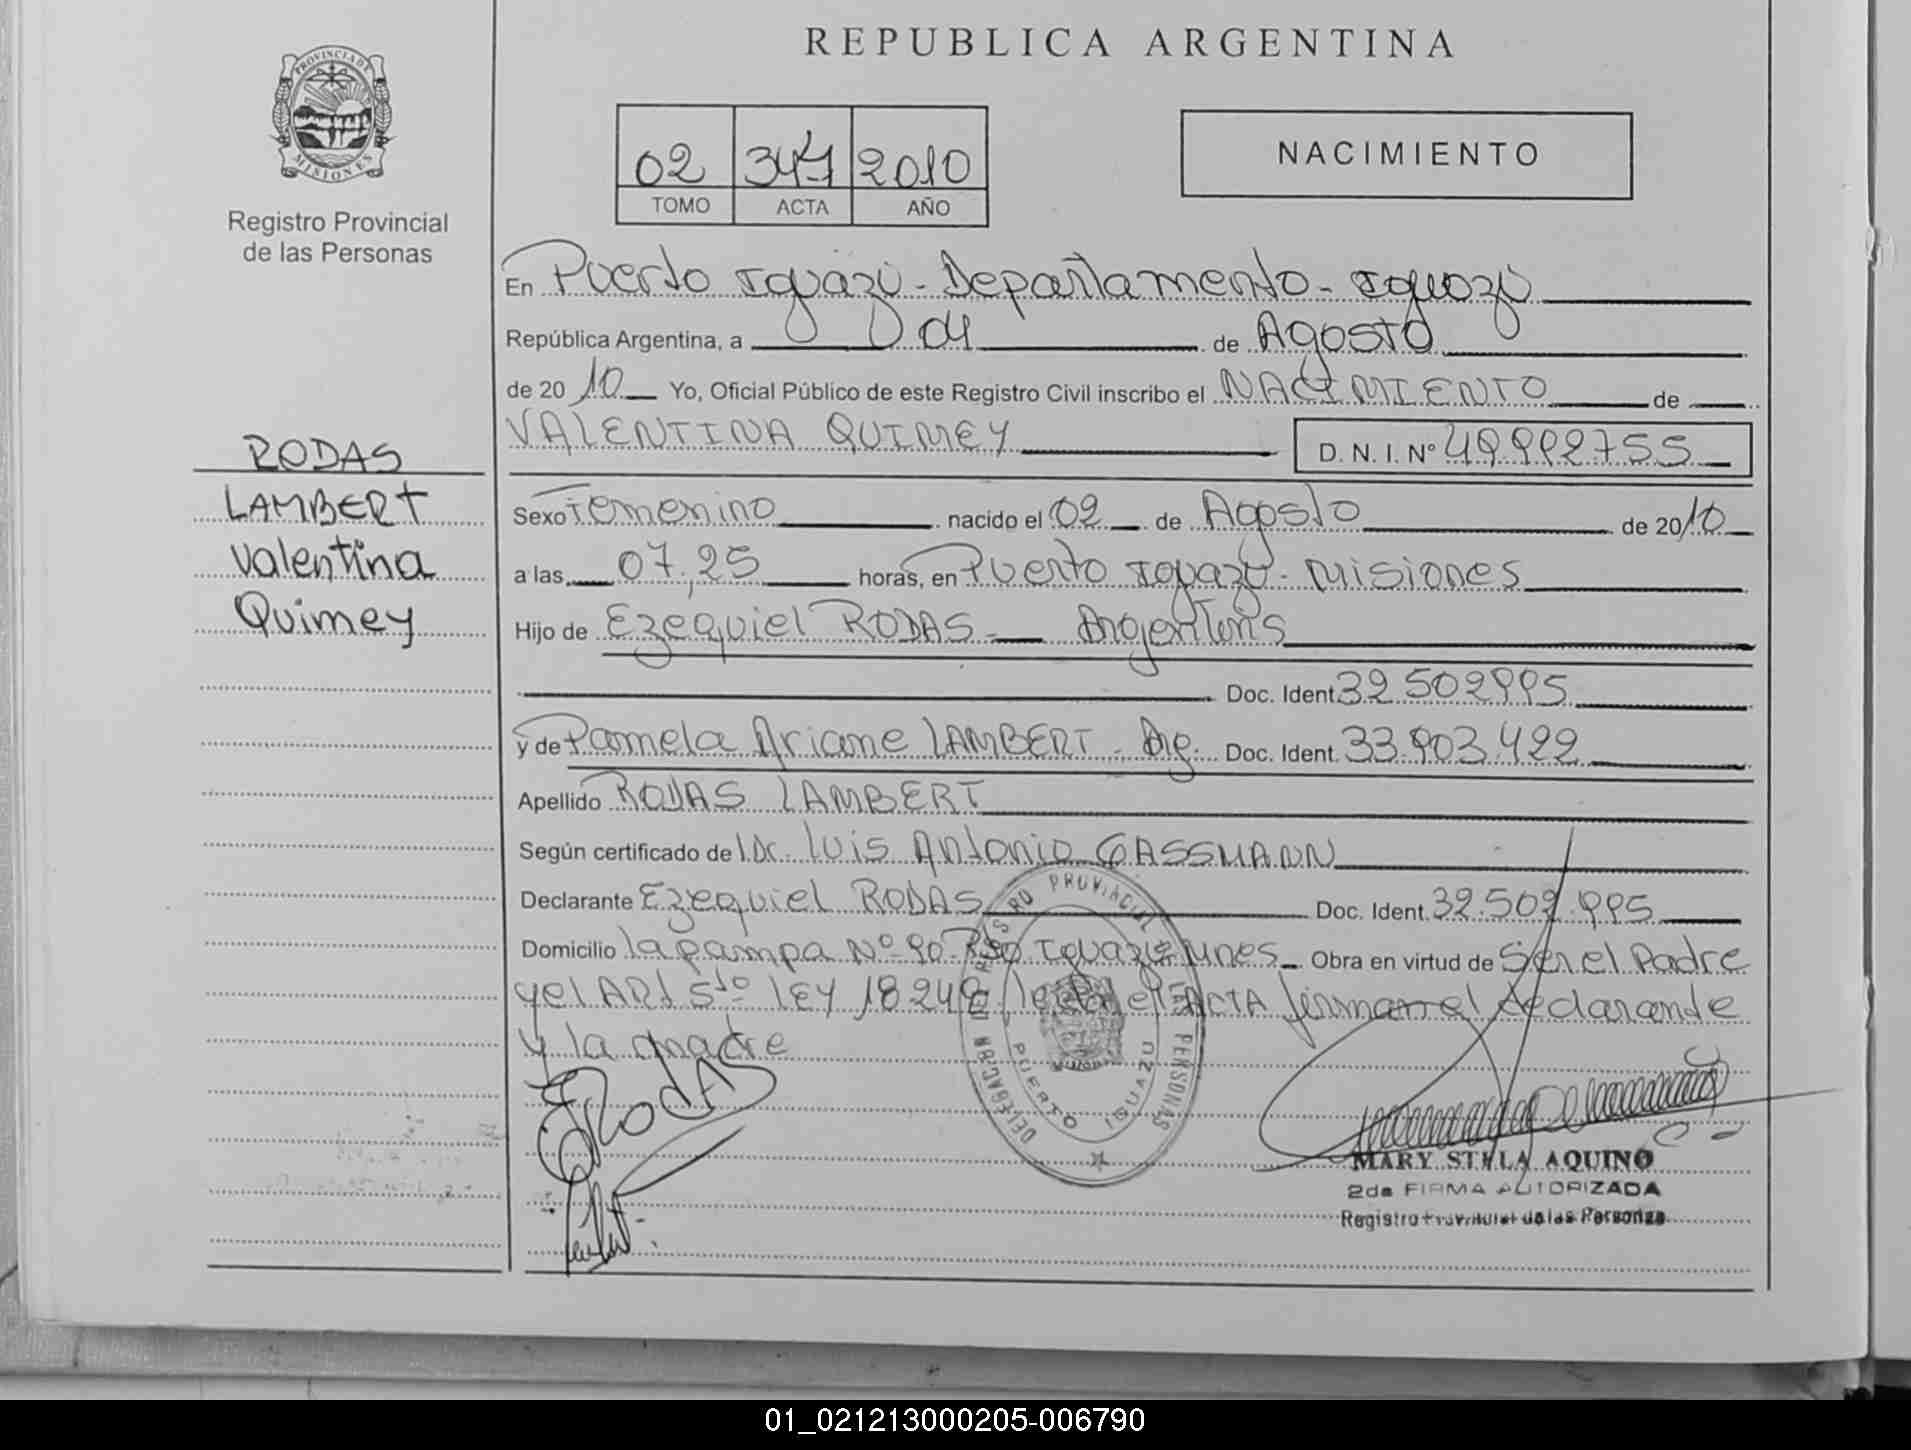 REPUBLICA ARGENTINA
PROVINCIA DE
MISIONES
Registro Provincial
de las Personas
02 344 2010
TOMO ACTA AÑO
NACIMIENTO
En Puerto Iguazú - Departamento - Iguazú
República Argentina, a 04 de Agosto
de 20 10 Yo, Oficial Público de este Registro Civil inscribo el NACIMIENTO de
VALENTINA QUIMEY D. N. I. Nº
RODAS
LAMBERT
Valentina
Quimey
Sexo Femenino nacido el 02 de Agosto de 20 10
a las 07,25 horas, en Puerto Iguazú - Misiones
Hijo de Ezequiel RODAS
Doc. Ident. 32.502.995
y de Pamela Ariane LAMBERT - Arg. Doc. Ident. 33.903.422
Apellido RODAS LAMBERT
Según certificado de Dr. Luis Antonio GASSMANN
Declarante Ezequiel RODAS Doc. Ident. 32.502.995
Domicilio la pampa Nº 90 Iguazú Obra en virtud de Ser el Padre
y el ART 5to LEY 18248, leída el ACTA firman el declarante
y la madre
E RODAS
DELEGACION REGISTRO PROVINCIAL LAS PERSONAS
PUERTO IGUAZU
MARY STELA AQUINO
2da FIRMA AUTORIZADA
Registro Provincial de las Personas
01_021213000205-006790